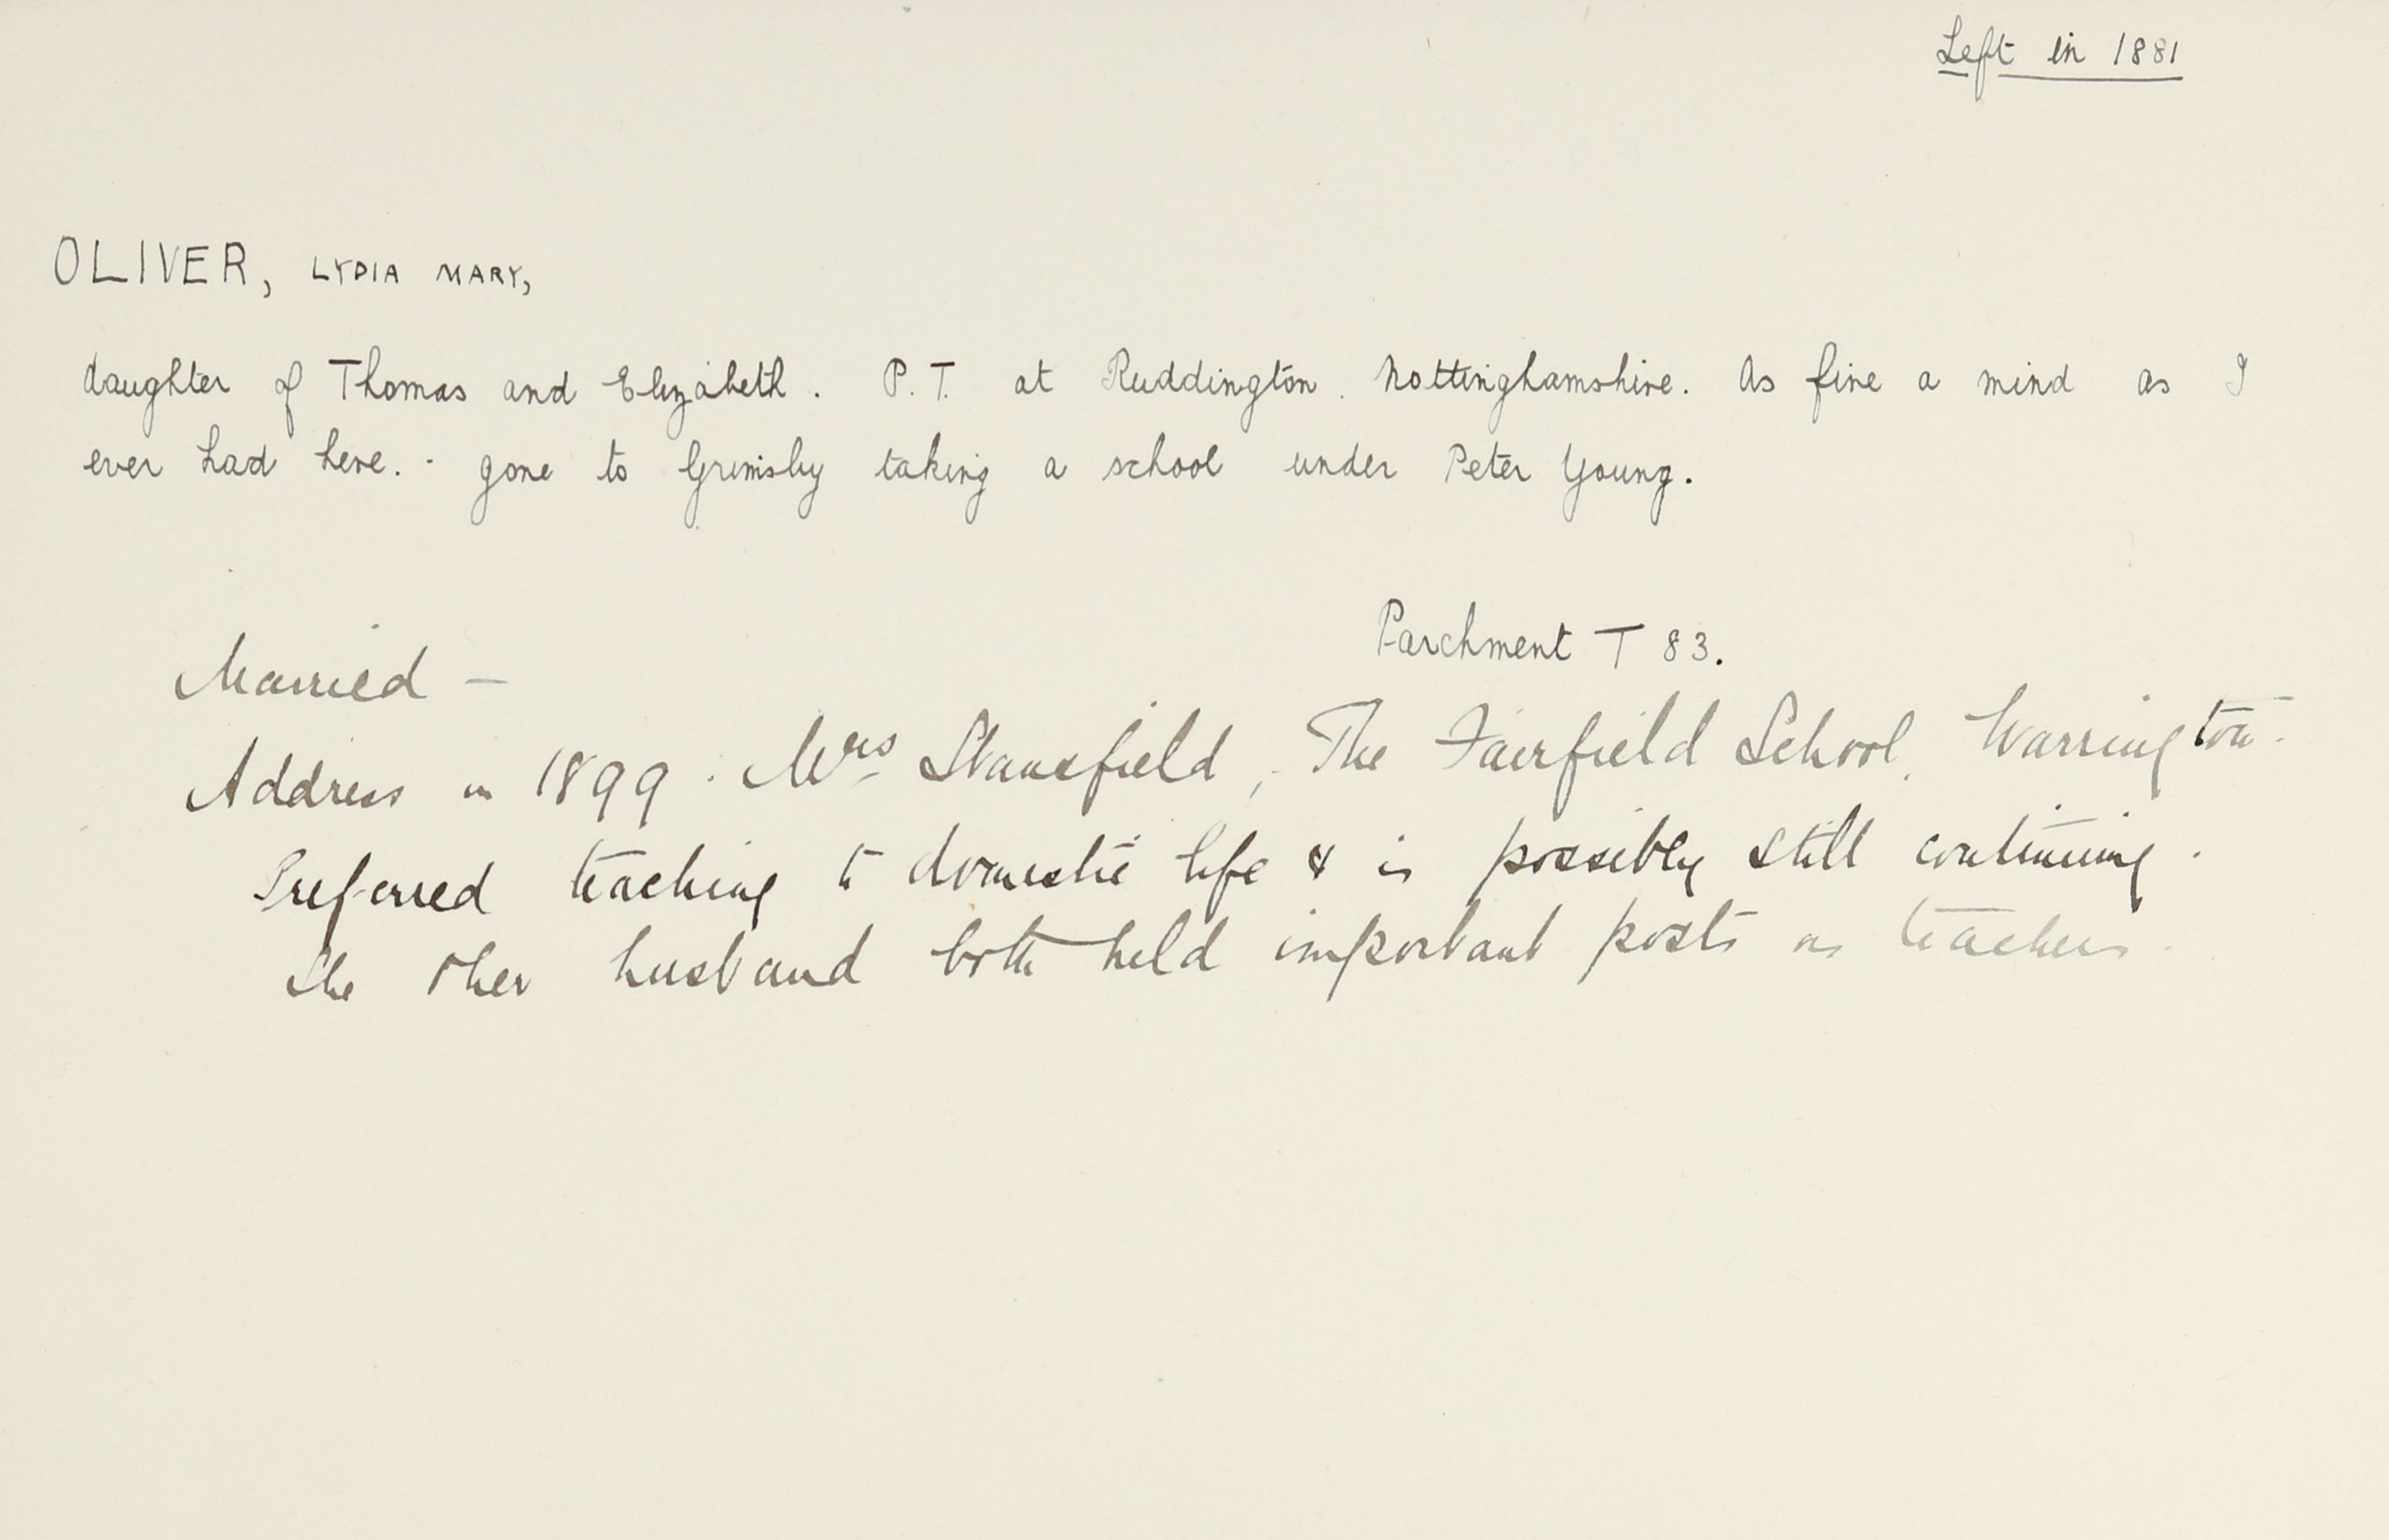 Left in 1881
OLIVER, LYDIA MARY,
daughter of Thomas and Elizabeth. P.T. at Ruddington. Nottinghamshire. As fine a mind as I
ever had here. - gone to Grimsby taking a school under Peter Young.
Parchment T 83.
Married —
Address in 1899. Mrs Stansfield, The Fairfield School, Warrington.
Preferred teaching to domestic life & is possibly still continuing.
She & her husband both held important posts as teachers.